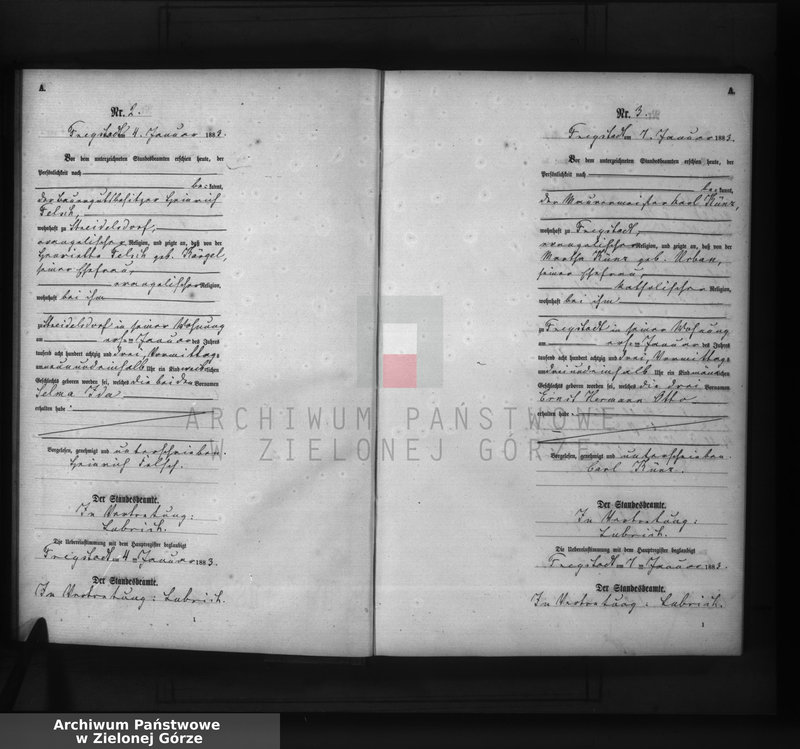 A.
Nr. 2.
Freystadt am 4. Januar 1883.
Vor dem unterzeichneten Standesbeamten erschien heute, der
Persönlichkeit nach
be- kannt,
der Bauergutsbesitzer Heinrich
Felsch,
wohnhaft zu Streidelsdorf,
evangelischer Religion, und zeigte an, daß von der
Henriette Felsch geb. Kärgel,
seiner Ehefrau,
evangelischer Religion,
wohnhaft bei ihm
zu Streidelsdorf in seiner Wohnung
am ersten Januar des Jahres
tausend acht hundert achtzig und drei, Vormittags
um neunundeinhalb Uhr ein Kind weiblichen
Geschlechts geboren worden sei, welches die beiden Vornamen
Selma Ida
erhalten habe
Vorgelesen, genehmigt und unterschrieben.
Heinrich Felsch.
Der Standesbeamte.
In Vertretung:
Lubrich.
Die Uebereinstimmung mit dem Hauptregister beglaubigt
Freystadt am 4. Januar 1883.
Der Standesbeamte.
In Vertretung: Lubrich.
1
A.
Nr. 3.
Freystadt am 7. Januar 1883.
Vor dem unterzeichneten Standesbeamten erschien heute, der
Persönlichkeit nach
be kannt,
der Maurermeister Carl Künz,
wohnhaft zu Freystadt,
evangelischer Religion, und zeigte an, daß von der
Martha Künz geb. Urban,
seiner Ehefrau,
katholischer Religion,
wohnhaft bei ihm
zu Freystadt in seiner Wohnung
am ersten Januar des Jahres
tausend acht hundert achtzig und drei, Vormittags
um dreiundeinhalb Uhr ein Kind männlichen
Geschlechts geboren worden sei, welches die drei Vornamen
Ernst Hermann Otto
erhalten habe
Vorgelesen, genehmigt und unterschrieben.
Carl Künz.
Der Standesbeamte.
In Vertretung:
Lubrich.
Die Uebereinstimmung mit dem Hauptregister beglaubigt
Freystadt am 7. Januar 1883.
Der Standesbeamte.
In Vertretung: Lubrich.
1
ARCHIWUM PAŃSTWOWE
W ZIELONEJ GÓRZE
Archiwum Państwowe
w Zielonej Górze